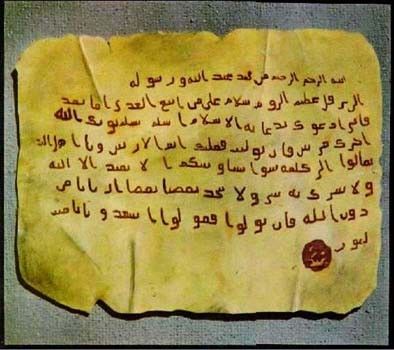 بسم الله الرحمن الرحيم من محمد عبد الله ورسوله
الى هرقل عظيم الروم سلام على من اتبع الهدى اما بعد
فانى ادعوك بدعاية الاسلام اسلم تسلم يوتك الله
اجرك مرتين فان توليت فعليك اثم الاريسين ويا اهل
تعالوا الى كلمة سوا بيننا وبينكم الا نعبد الا الله
ولا نشرك به شيا ولا يتخذ بعضنا بعضا اربابا من
دون الله فان تولوا فقولوا اشهدوا بانا مس
لمون